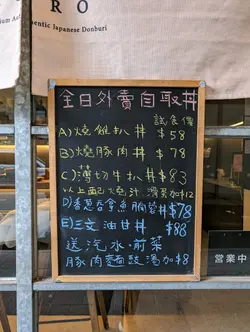 R O
thentic Japanese Donburi
全日外賣自取丼
試食價
A)燒雞扒丼 $58
B)燒豚肉丼 $78
C)薄切牛扒丼 $83
以上配燒汁 濱菜加$12
D)香蔥吞拿魚腩蓉丼$78
E)三文油甘丼 $88
送汽水.前菜
豚肉麵豉湯加$8
營業中